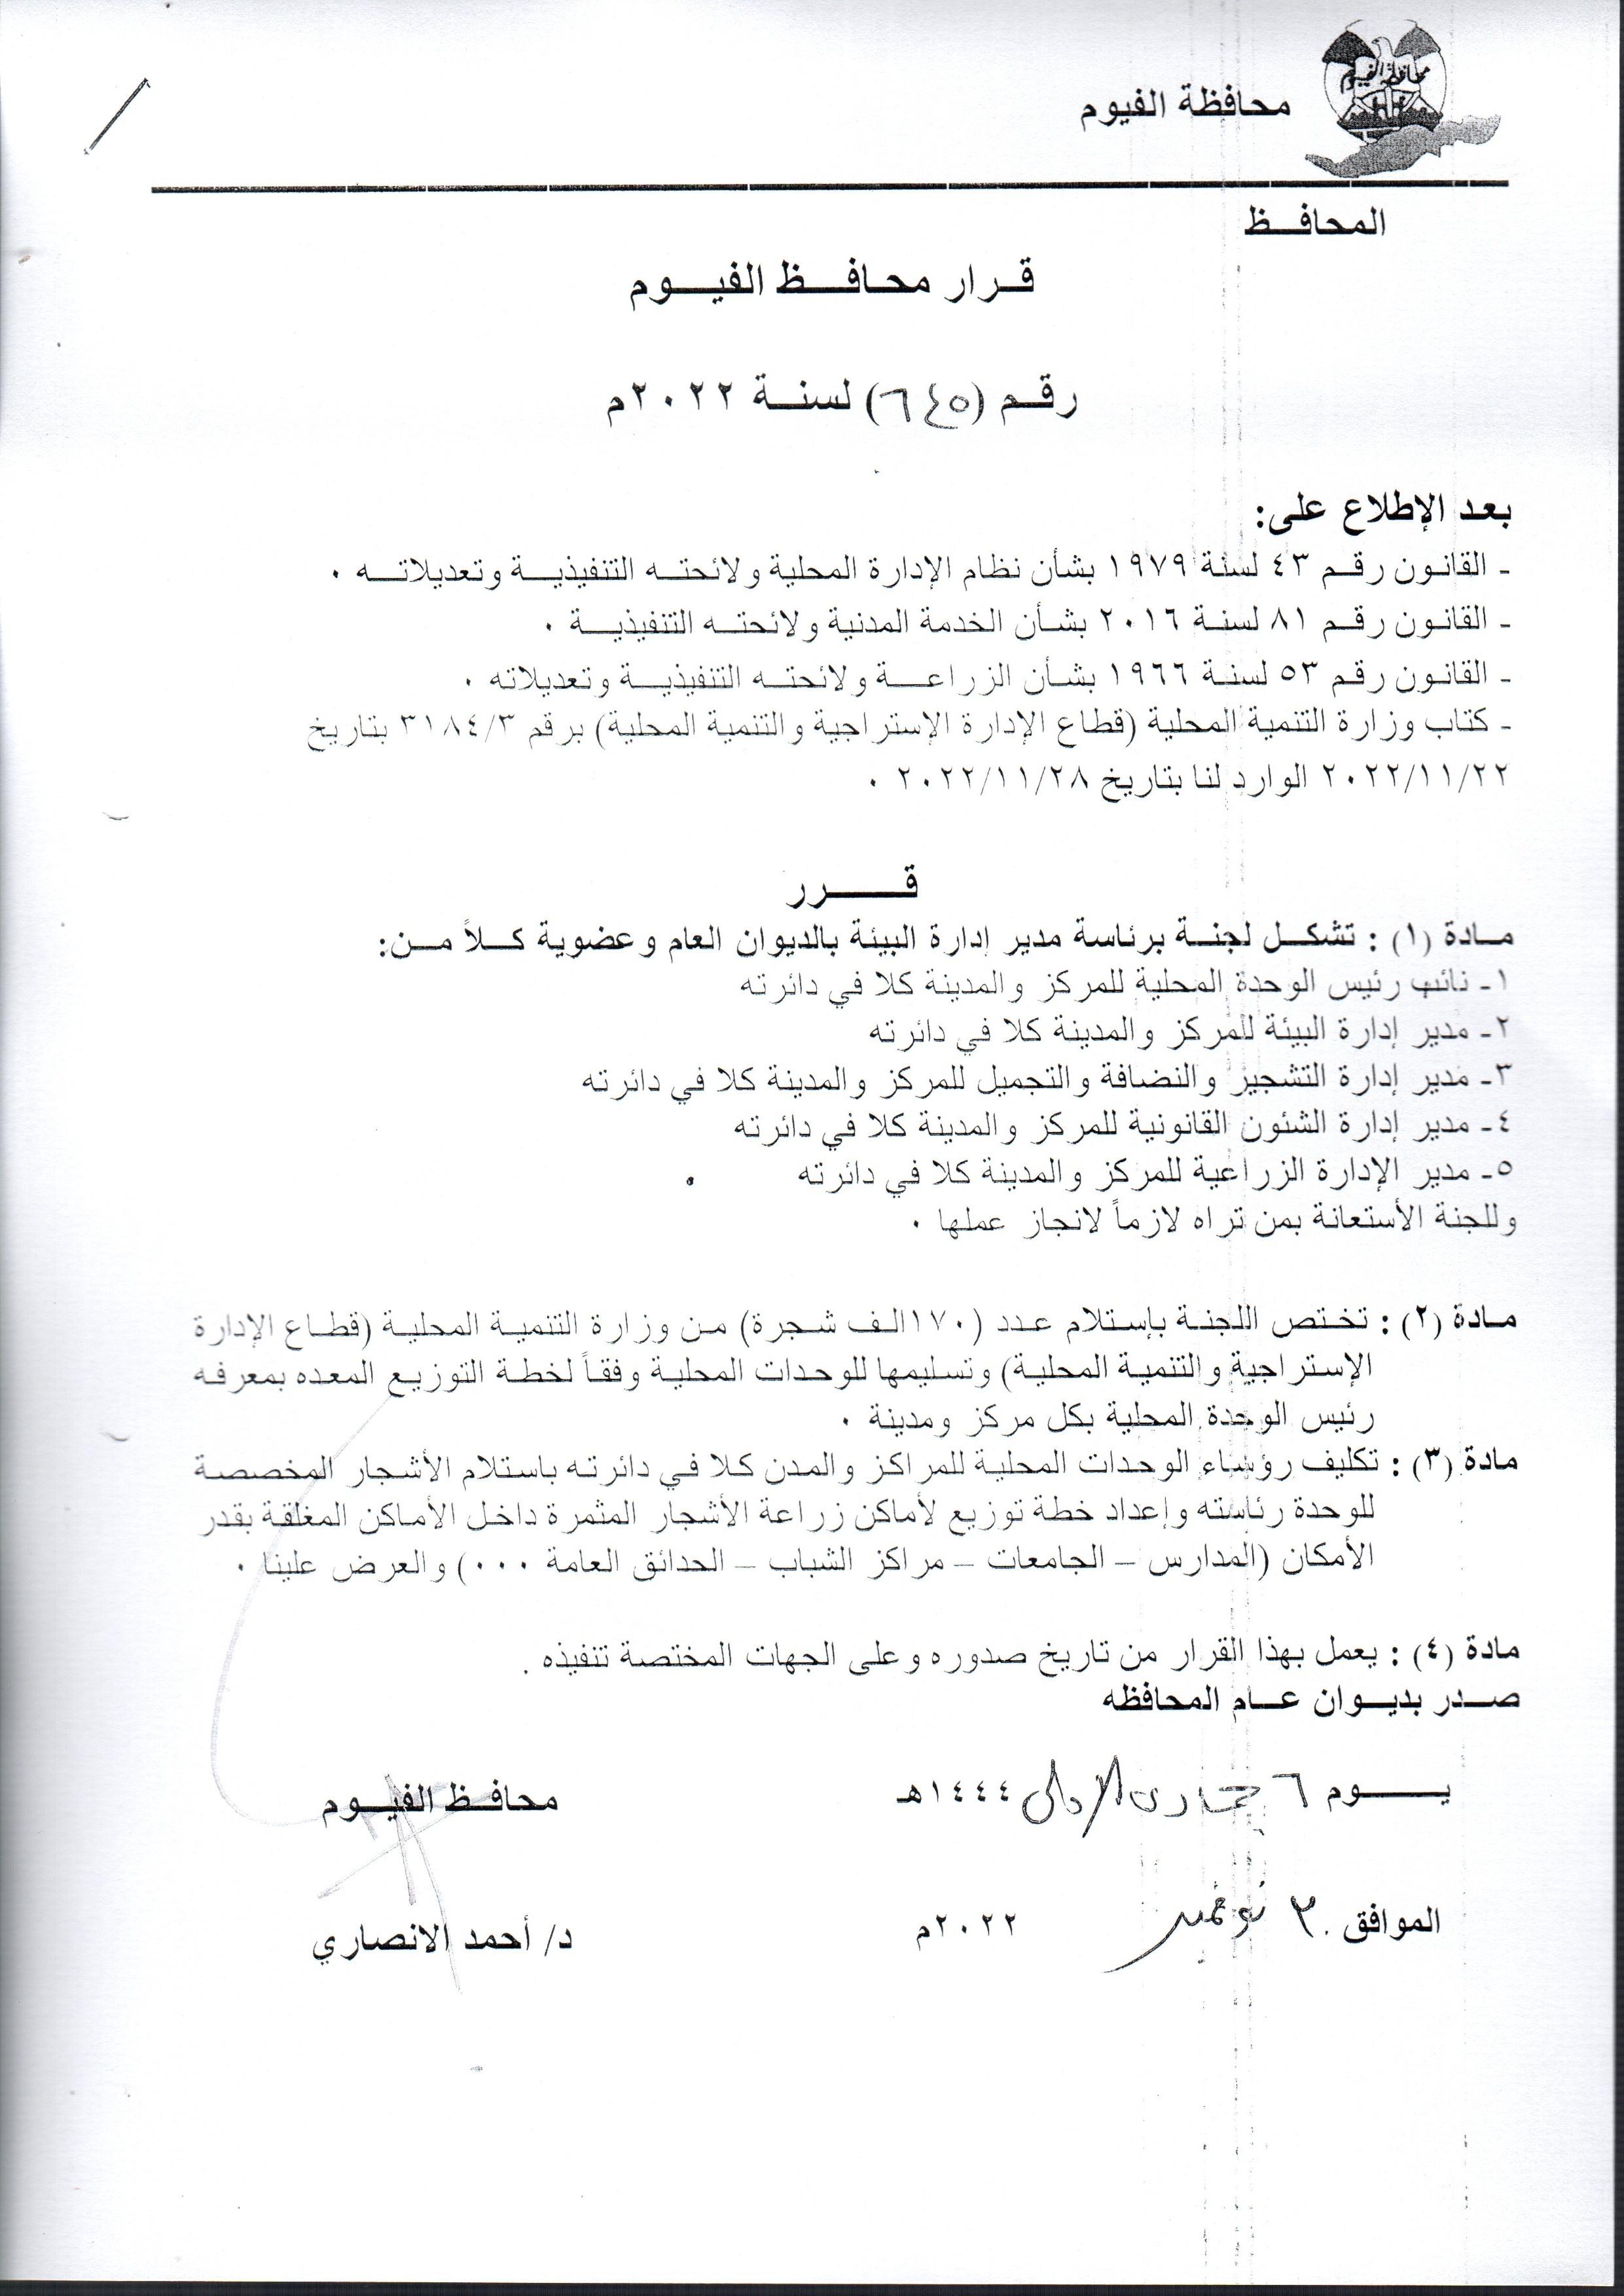 محافظة الفيوم
محافظة الفيوم
المحافـــظ
قــرار محـافـــظ الفيـــوم
رقــم (٦٤٥) لسنــة ٢٠٢٢م
بعد الإطلاع على:
ـ القانون رقــم ٤٣ لسنة ١٩٧٩ بشأن نظام الإدارة المحلية ولائحتــه التنفيذيــة وتعديلاتــه ٠
ـ القانون رقــم ٨١ لسنــة ٢٠١٦ بشـأن الخدمة المدنية ولائحتــه التنفيذيــة ٠
ـ القانون رقــم ٥٣ لسنة ١٩٦٦ بشأن الزراعــة ولائحتــه التنفيذيــة وتعديلاته ٠
ـ كتاب وزارة التنمية المحلية (قطاع الإدارة الإستراجية والتنمية المحلية) برقم ٣١٨٤/٣ بتاريخ
٢٠٢٢/١١/٢٢ الوارد لنا بتاريخ ٢٠٢٢/١١/٢٨ ٠
قـــــرر
مــادة (١) : تشكــل لجنــة برئاسة مدير إدارة البيئة بالديوان العام وعضوية كــلاً مــن:
١ـ نائب رئيس الوحدة المحلية للمركز والمدينة كلا في دائرته
٢ـ مدير إدارة البيئة للمركز والمدينة كلا في دائرته
٣ـ مدير إدارة التشجير والنضافة والتجميل للمركز والمدينة كلا في دائرته
٤ـ مدير إدارة الشئون القانونية للمركز والمدينة كلا في دائرته
٥ـ مدير الإدارة الزراعية للمركز والمدينة كلا في دائرته ٠
وللجنة الأستعانة بمن تراه لازماً لانجاز عملها ٠
مــادة (٢) : تختص اللجنة بإستلام عدد (١٧٠الف شجرة) من وزارة التنمية المحلية (قطاع الإدارة
الإستراجية والتنمية المحلية) وتسليمها للوحدات المحلية وفقاً لخطة التوزيع المعده بمعرفه
رئيس الوحدة المحلية بكل مركز ومدينة ٠
مادة (٣) : تكليف رؤساء الوحدات المحلية للمراكز والمدن كلا في دائرته باستلام الأشجار المخصصة
للوحدة رئاسته وإعداد خطة توزيع لأماكن زراعة الأشجار المثمرة داخل الأماكن المغلقة بقدر
الأمكان (المدارس – الجامعات – مراكز الشباب – الحدائق العامة ٠٠٠) والعرض علينا ٠
مادة (٤) : يعمل بهذا القرار من تاريخ صدوره وعلى الجهات المختصة تنفيذه .
صــدر بديــوان عــام المحافظه
يـــــوم ٦ جمادى الاولى ١٤٤٤هـ
محافـظ الفيـــوم
الموافق ٣٠ نوفمبر ٢٠٢٢م
د/ أحمد الانصاري